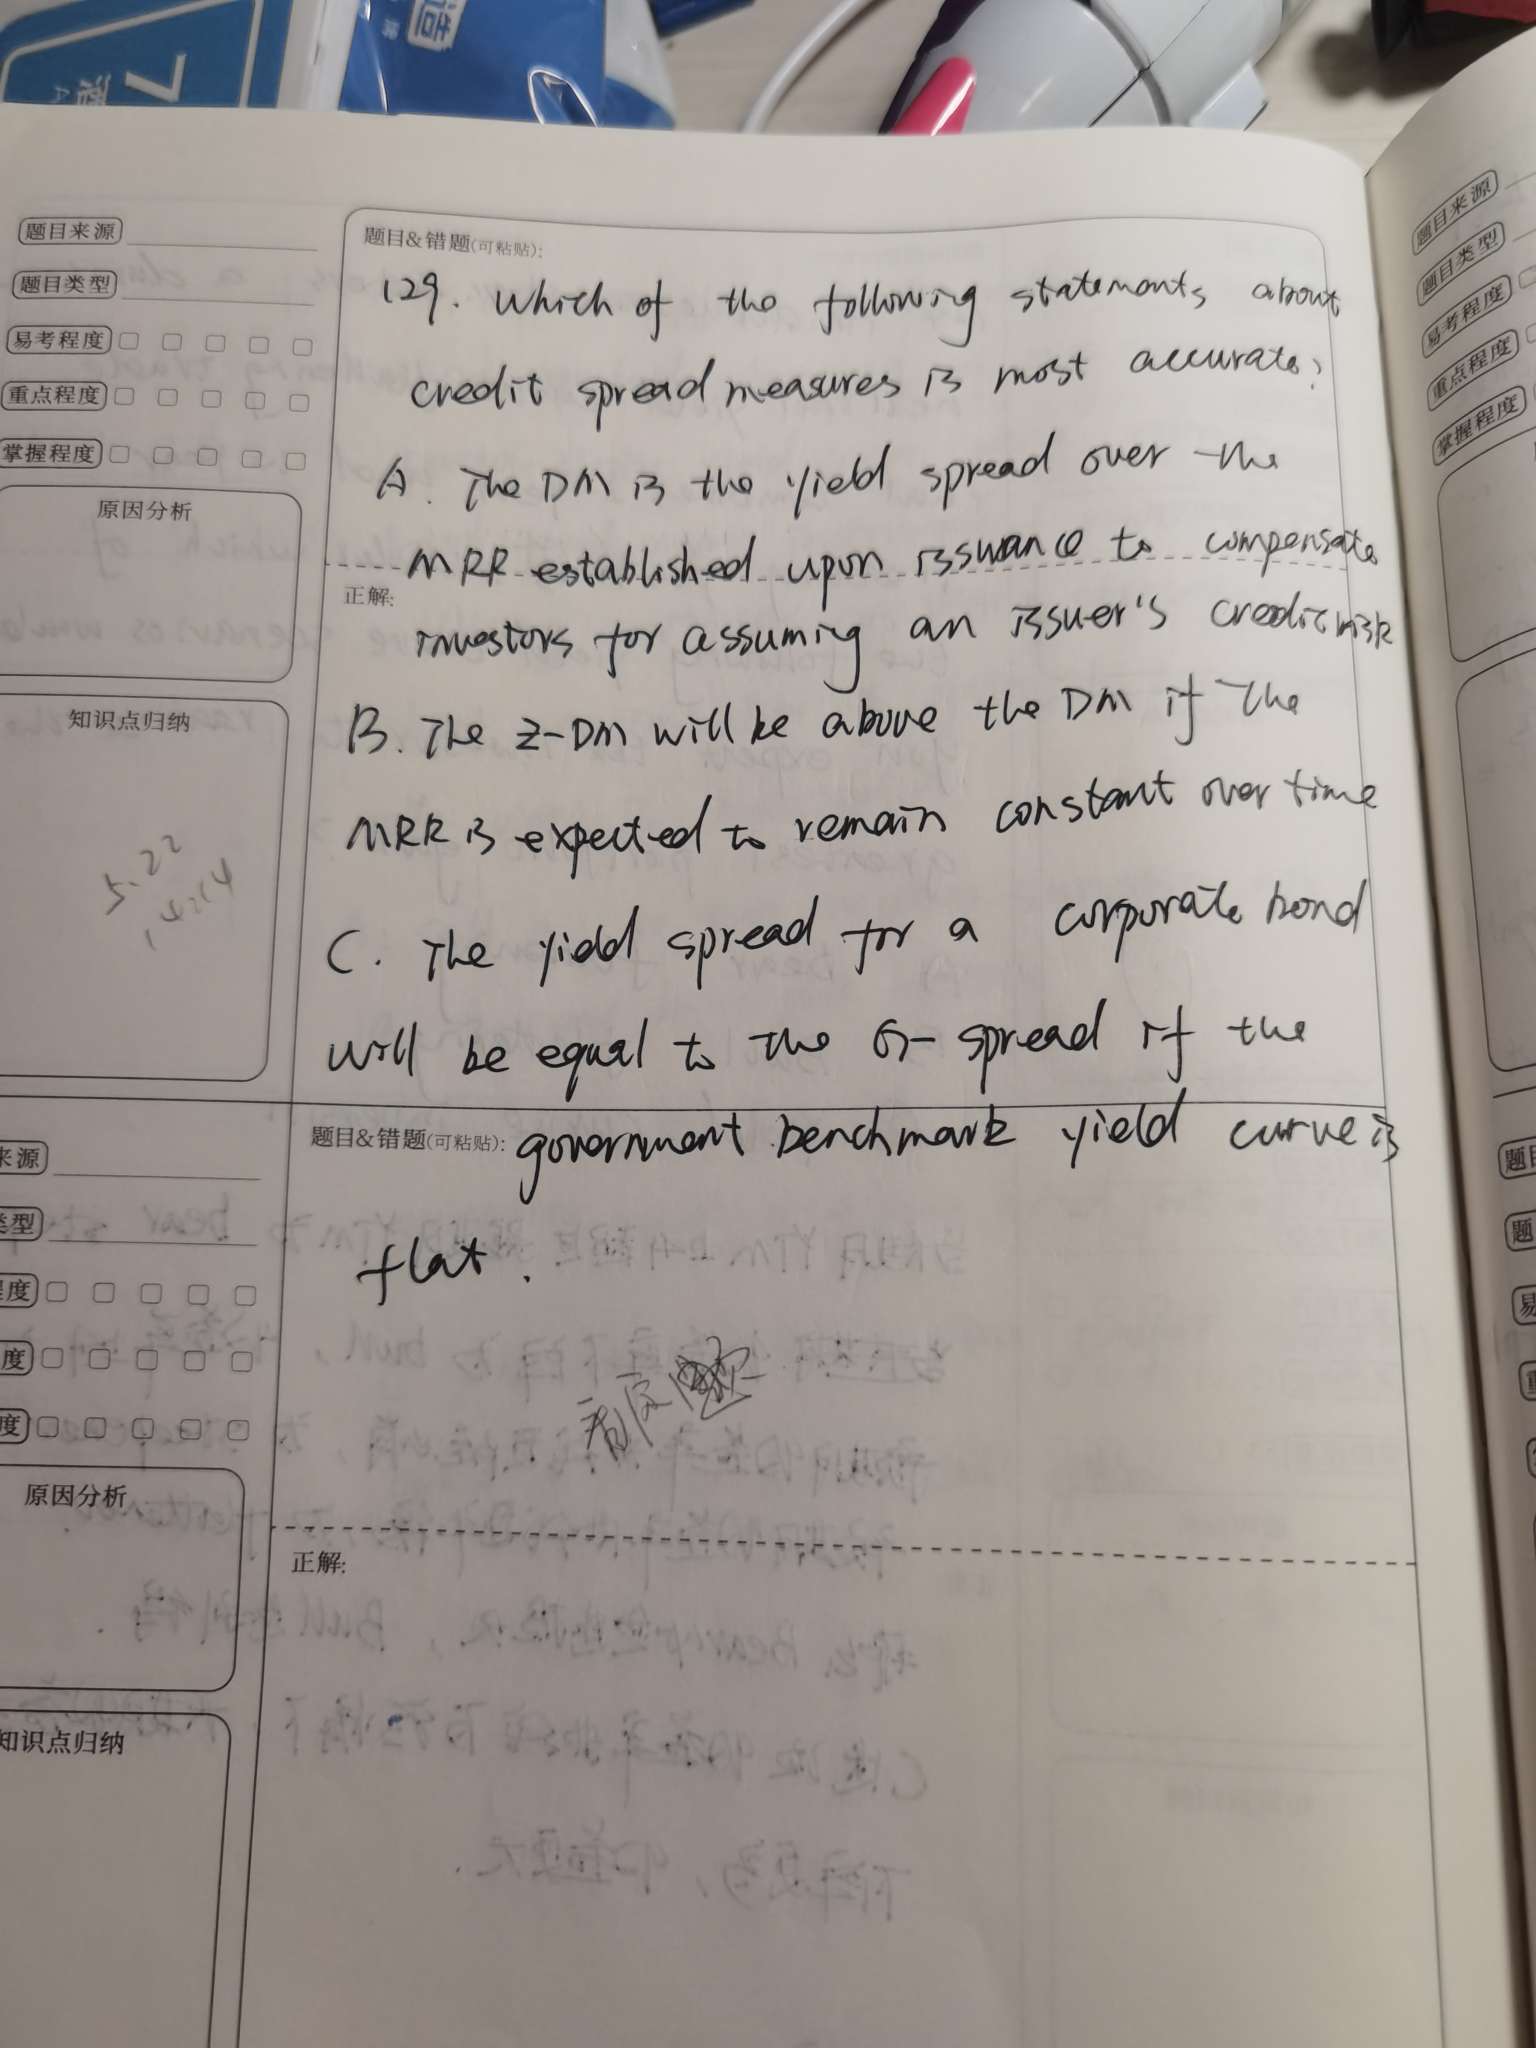 造
7
题目来源
题目类型
易考程度
重点程度
掌握程度
原因分析
知识点归纳
5.22
题目&错题(可粘贴):
129. Which of the following statements about
credit spread measures is most accurate?
A. The DM is the yield spread over the
MRR established upon issuance to compensate
正解:
investors for assuming an issuer's credit risk
B. The Z-DM will be above the DM if the
MRR is expected to remain constant over time
C. The yield spread for a corporate bond
will be equal to the G-spread if the
题目&错题(可粘贴): government benchmark yield curve is
flat.
正解:
来源
类型
程度
度
度
原因分析
知识点归纳
题目来源
题目类型
易考程度
重点程度
掌握程度